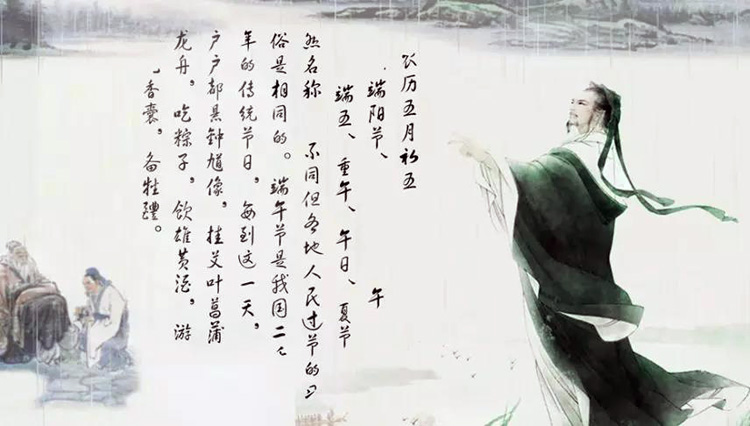 农历五月初五
端阳节、 午
端五、重午、午日、夏节
然名称 不同但各地人民过节的习
俗是相同的。端午节是我国二
年的传统节日，每到这一天，
户户都悬钟馗像，挂艾叶菖蒲
龙舟，吃粽子，饮雄黄酒，游
香囊，备牲醴。